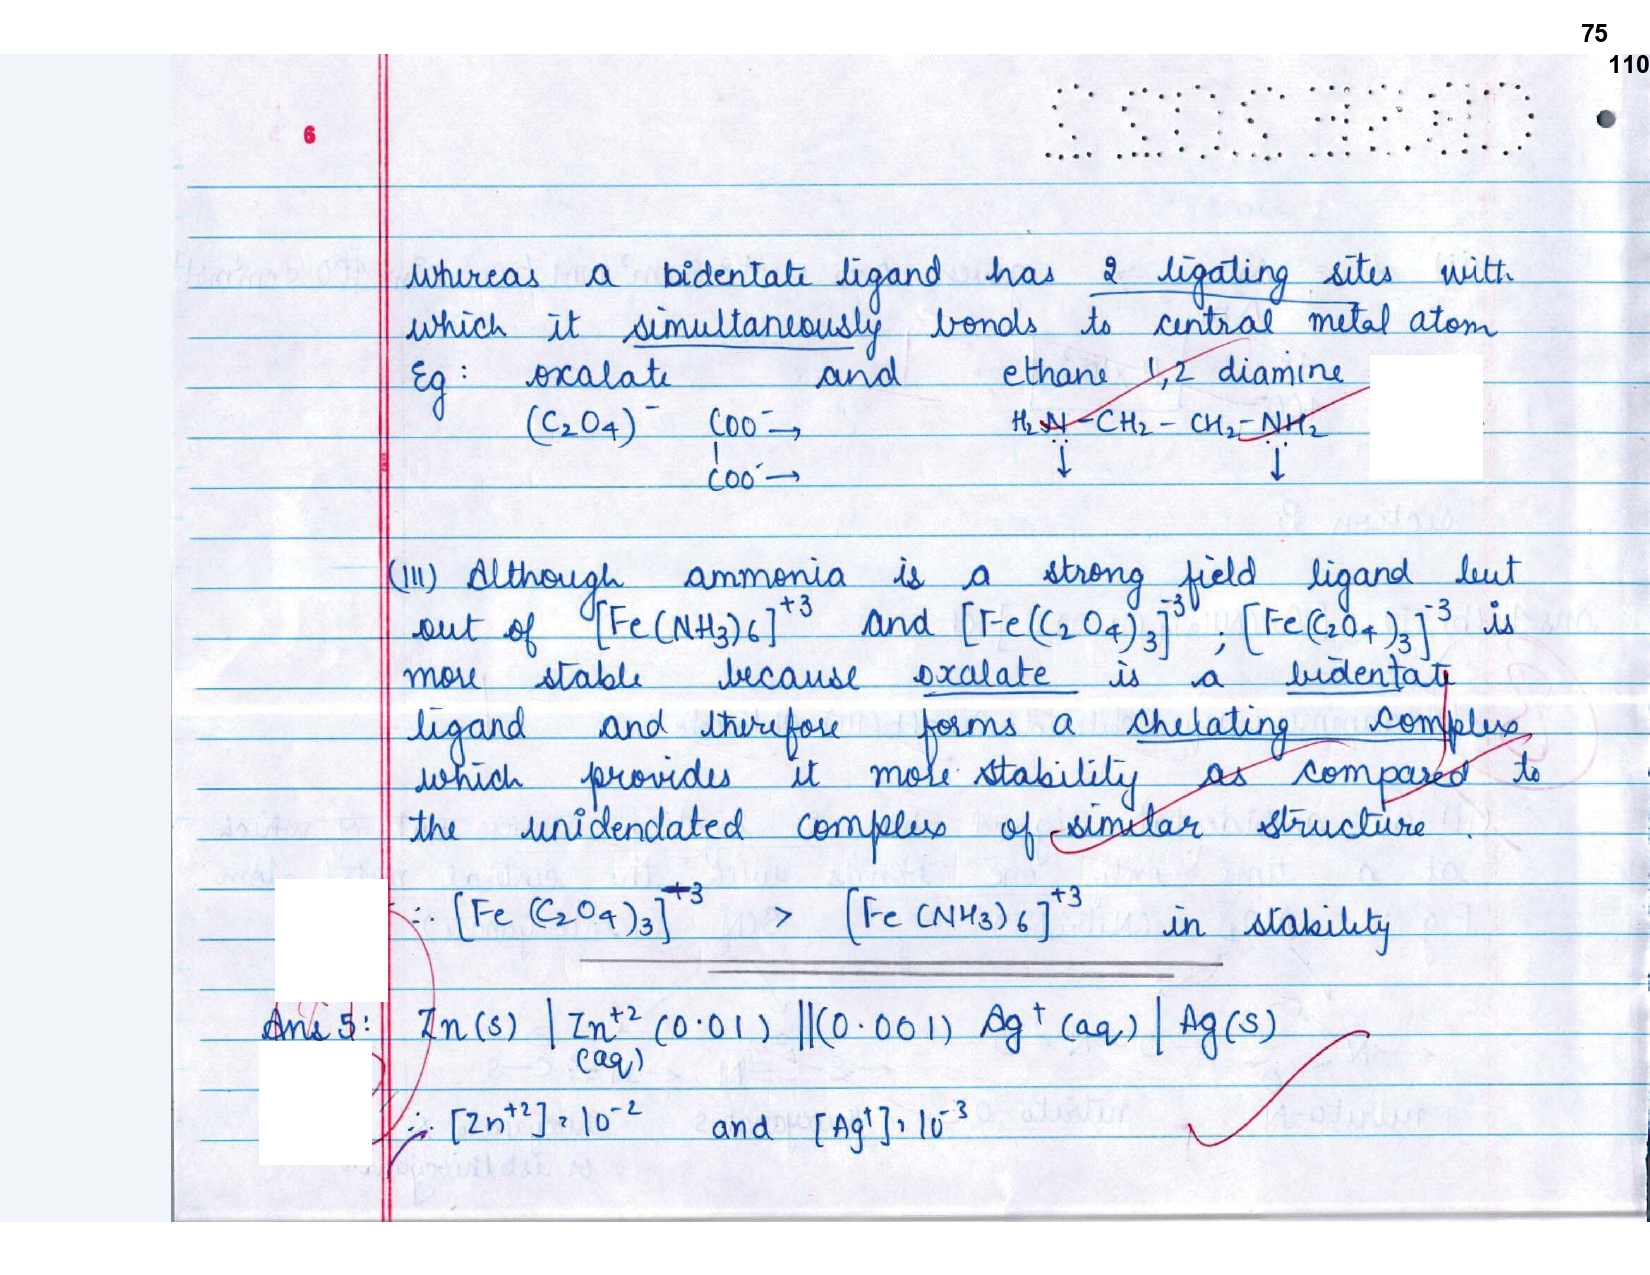 75
110
6
whereas a bidentate ligand has 2 ligating sites with
which it simultaneously bonds to central metal atom
Eg: oxalate and ethane 1,2 diamine
(C2O4)⁻ COO⁻→ H2N-CH2-CH2-NH2
COO⁻→ ↓ ↓
(III) Although ammonia is a strong field ligand but
out of [Fe(NH3)6]⁺³ and [Fe(C2O4)3]⁻³; [Fe(C2O4)3]⁻³ is
more stable because oxalate is a bidentate
ligand and therefore forms a chelating complex
which provides it more stability as compared to
the unidendated complex of similar structure.
∴ [Fe(C2O4)3]⁺³ > [Fe(NH3)6]⁺³ in stability
Ans 5: Zn(s) | Zn⁺² (0.01) ||(0.001) Ag⁺ (aq) | Ag(s)
(aq)
∴ [Zn⁺²] = 10⁻² and [Ag⁺] = 10⁻³